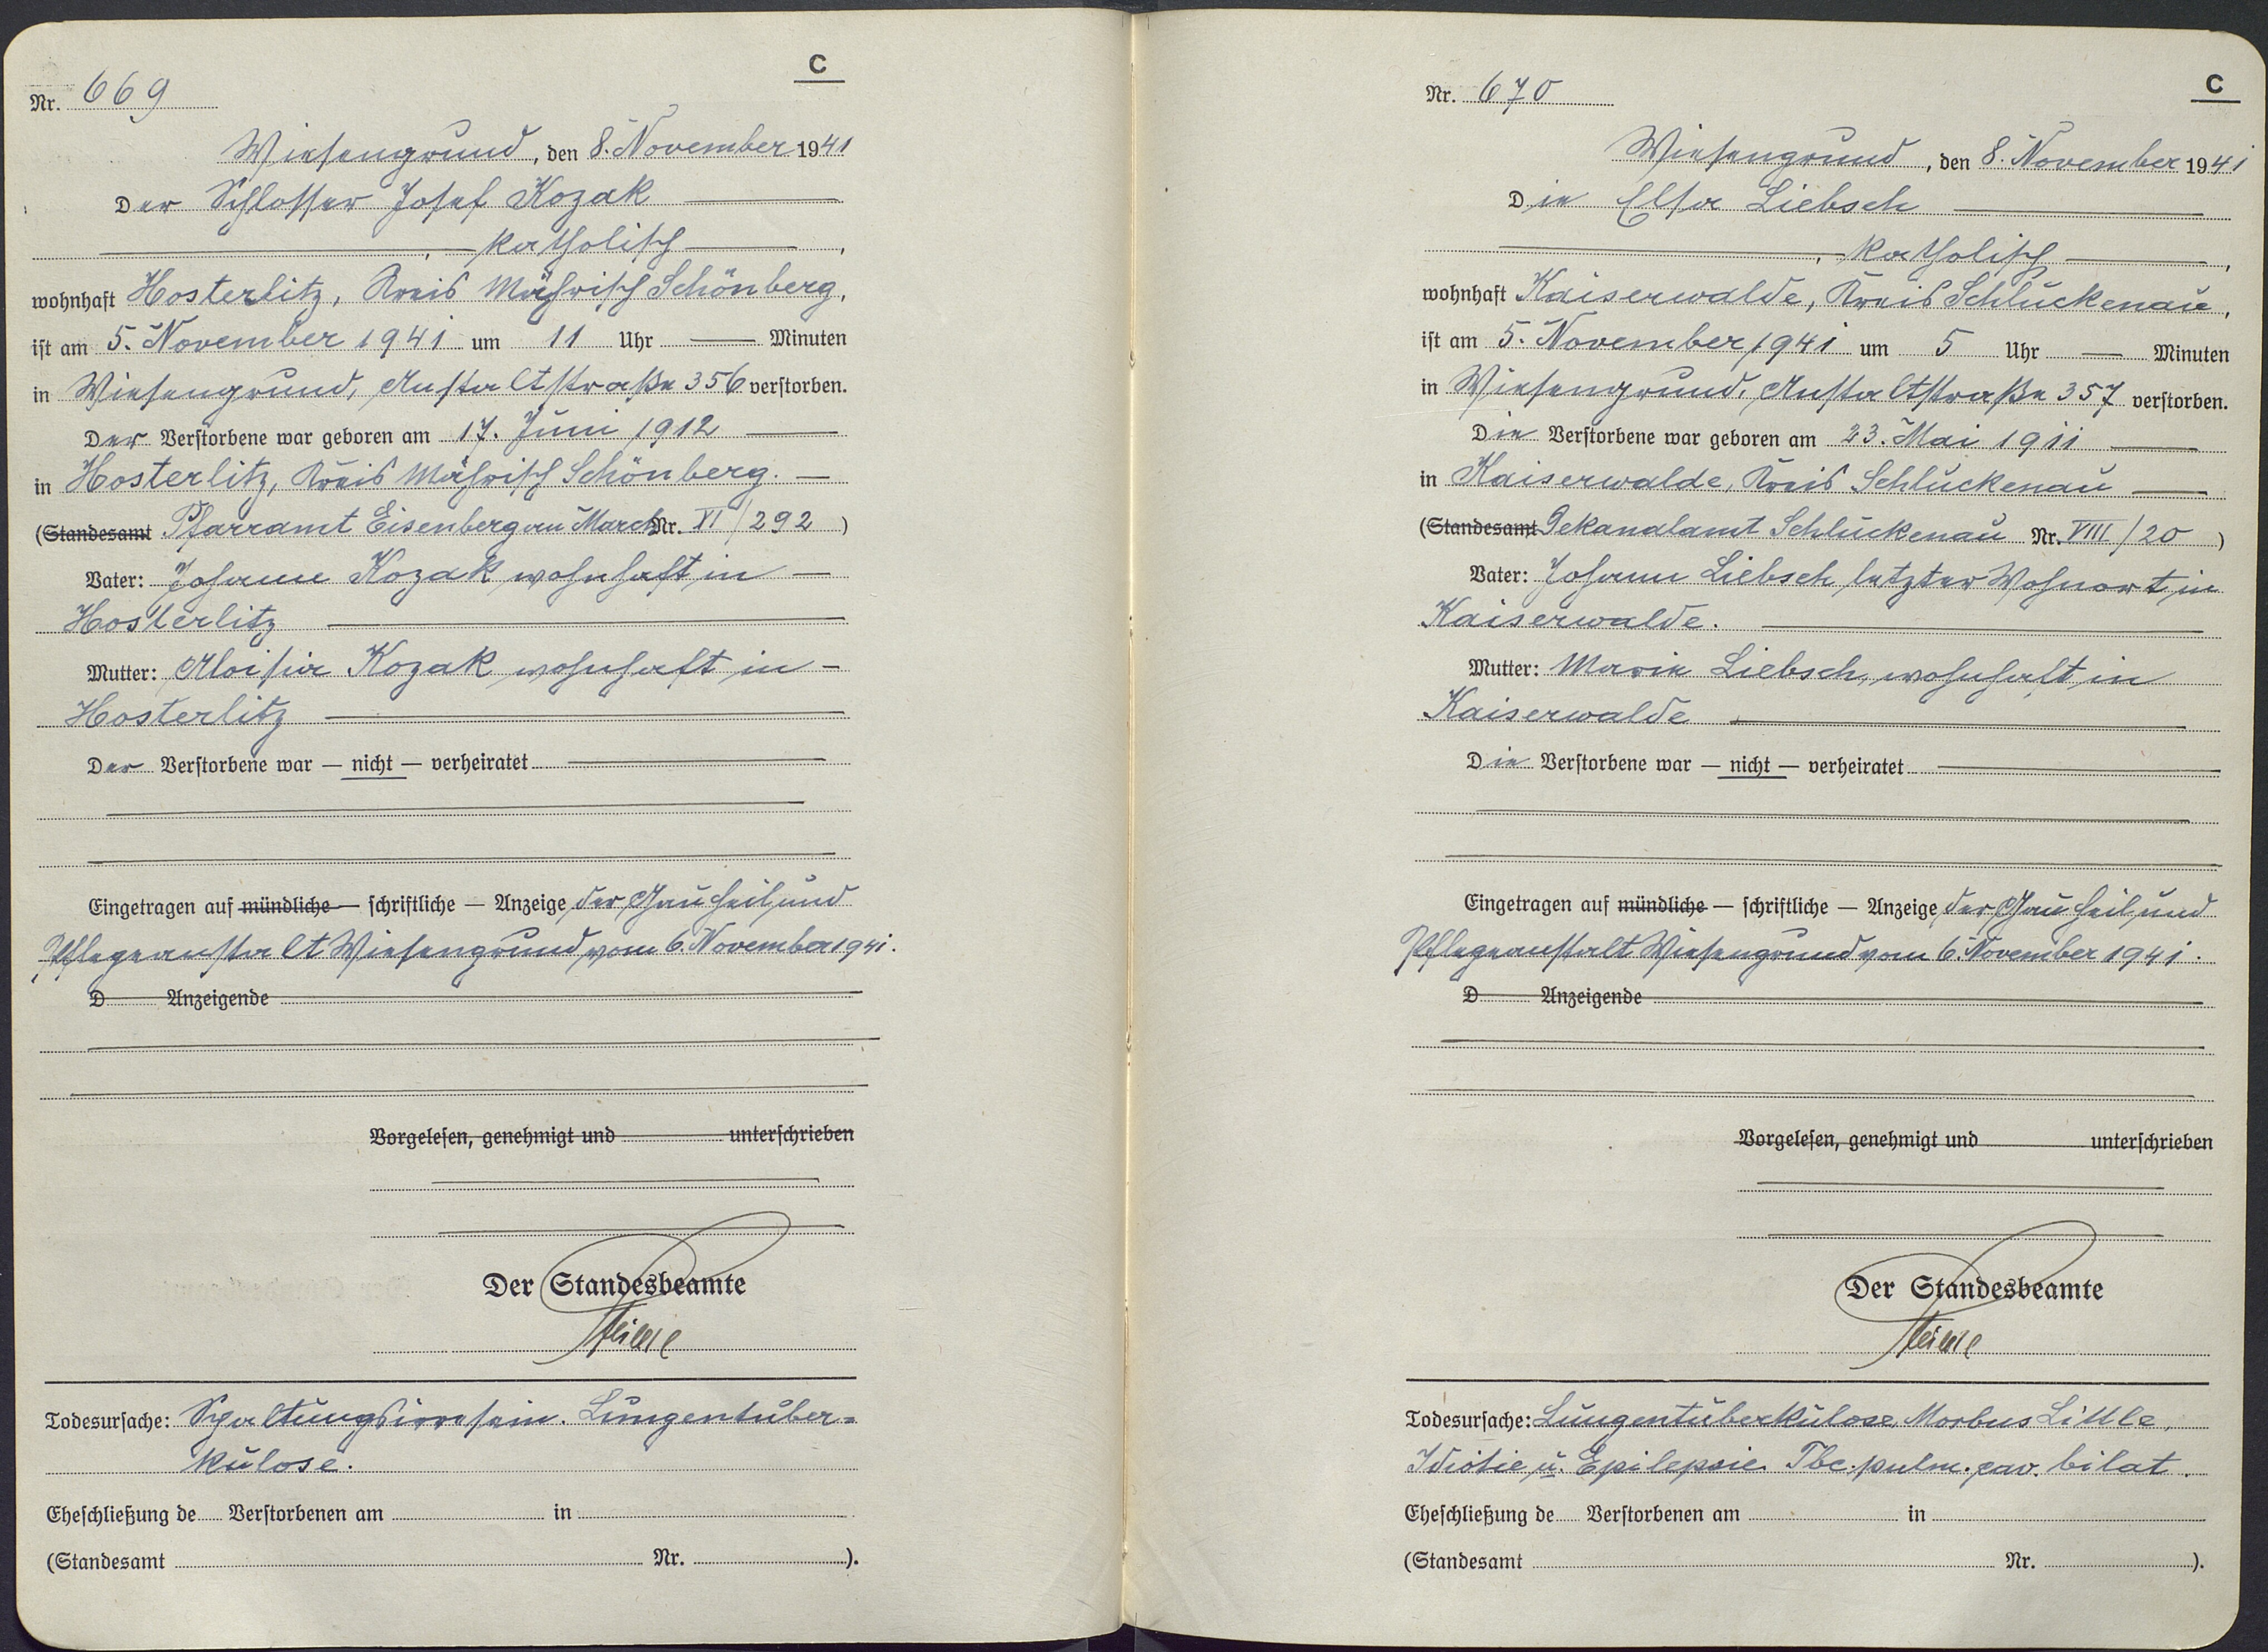 C
Nr. 669
Wiesengrund, den 8. November 1941
Der Schlosser Josef Kozak
, katholisch ,
wohnhaft Hosterlitz, Kreis Mährisch Schönberg,
ist am 5. November 1941 um 11 Uhr — Minuten
in Wiesengrund, Anstaltstraße 356 verstorben.
Der Verstorbene war geboren am 17. Juni 1912
in Hosterlitz, Kreis Mährisch Schönberg. —
(Standesamt Pfarramt Eisenberg an March Nr. XI/292)
Vater: Johann Kozak wohnhaft in —
Hosterlitz
Mutter: Aloisia Kozak wohnhaft in —
Hosterlitz
Der Verstorbene war — nicht — verheiratet
Eingetragen auf mündliche — schriftliche — Anzeige der Gau Heil und
Pflegeanstalt Wiesengrund vom 6. November 1941.
D Anzeigende
Vorgelesen, genehmigt und unterschrieben
Der Standesbeamte
Todesursache: Spaltungsirresein. Lungentuber=
kulose.
Eheschließung de Verstorbenen am in
(Standesamt Nr. ).
C
Nr. 670
Wiesengrund, den 8. November 1941
Die Elsa Liebsch
, katholisch ,
wohnhaft Kaiserwalde, Kreis Schluckenau,
ist am 5. November 1941 um 5 Uhr — Minuten
in Wiesengrund, Anstaltstraße 357 verstorben.
Die Verstorbene war geboren am 23. Mai 1911
in Kaiserwalde, Kreis Schluckenau
(Standesamt Dekanalamt Schluckenau Nr. VIII/20)
Vater: Johann Liebsch, letzter Wohnort in
Kaiserwalde.
Mutter: Marie Liebsch, wohnhaft in
Kaiserwalde
Die Verstorbene war — nicht — verheiratet
Eingetragen auf mündliche — schriftliche — Anzeige der Gau Heil und
Pflegeanstalt Wiesengrund vom 6. November 1941.
D Anzeigende
Vorgelesen, genehmigt und unterschrieben
Der Standesbeamte
Todesursache: Lungentuberkulose, Morbus Little,
Idiotie u. Epilepsie. Tbc. pulm. cav. bilat.
Eheschließung de Verstorbenen am in
(Standesamt Nr. ).